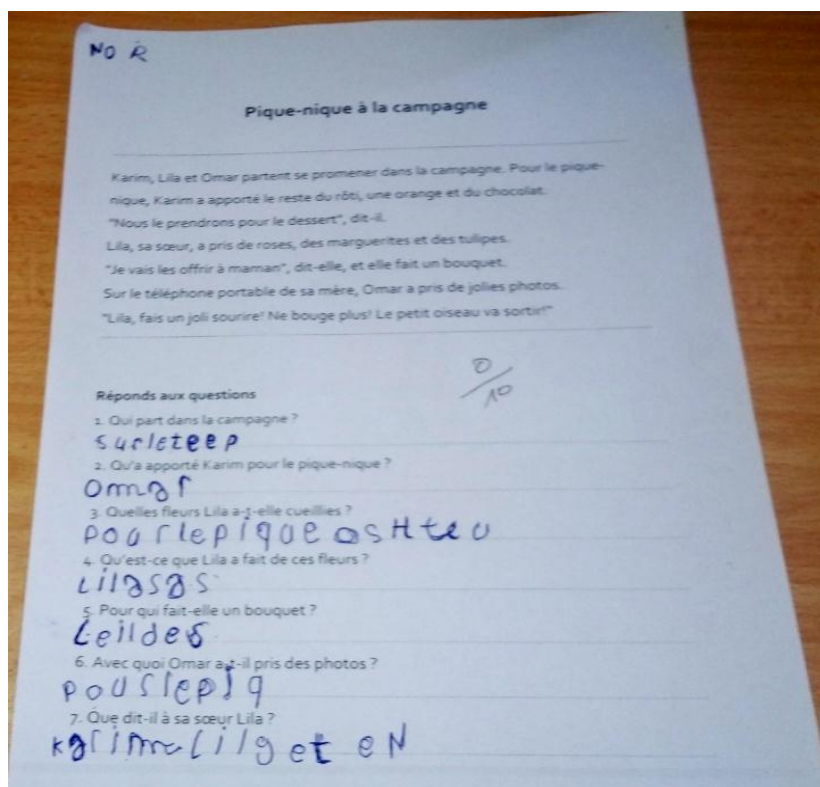 NO R
Pique-nique à la campagne
Karim, Lila et Omar partent se promener dans la campagne. Pour le pique-
nique, Karim a apporté le reste du rôti, une orange et du chocolat.
"Nous le prendrons pour le dessert", dit-il.
Lila, sa sœur, a pris de roses, des marguerites et des tulipes.
"Je vais les offrir à maman", dit-elle, et elle fait un bouquet.
Sur le téléphone portable de sa mère, Omar a pris de jolies photos.
"Lila, fais un joli sourire! Ne bouge plus! Le petit oiseau va sortir!"
0/10
Réponds aux questions
1. Qui part dans la campagne ?
surleteep
2. Qu'a apporté Karim pour le pique-nique ?
omar
3. Quelles fleurs Lila a-t-elle cueillies ?
pour lepique osHteu
4. Qu'est-ce que Lila a fait de ces fleurs ?
Lilasas
5. Pour qui fait-elle un bouquet ?
Leildes
6. Avec quoi Omar a-t-il pris des photos ?
pourlepiq
7. Que dit-il à sa sœur Lila ?
karim lilg et eN